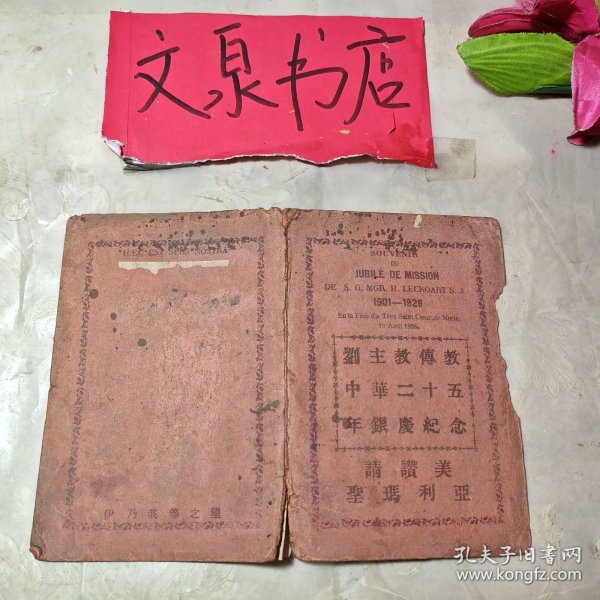 文泉书店
HÆC EST SPES NOSTRA
伊乃我等之望
SOUVENIR
DU
JUBILÉ DE MISSION
DE S. G. MGR. H. LECROART S. J.
1901—1926
En la Fête du Très Saint Cœur de Marie,
19 Août 1926.
劉主教傳教
中華二十五
年銀慶紀念
請讚美
聖瑪利亞
孔夫子旧书网
www.kongfz.com